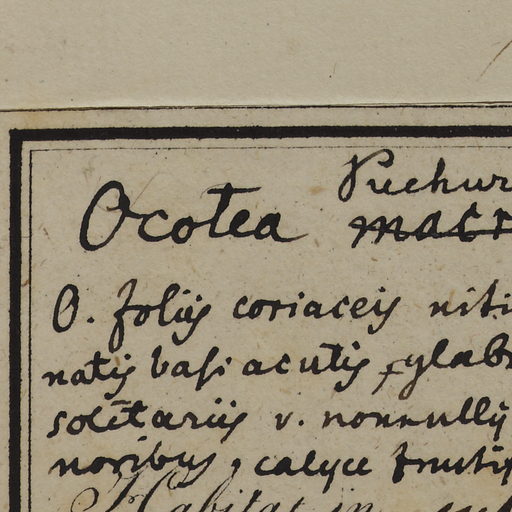 Puchur
Ocotea macr
O. foliis coriaceis niti
natis basi acutis, glabr
solitariis v. nonnullis
noribus, calyce fructis
Habitat in